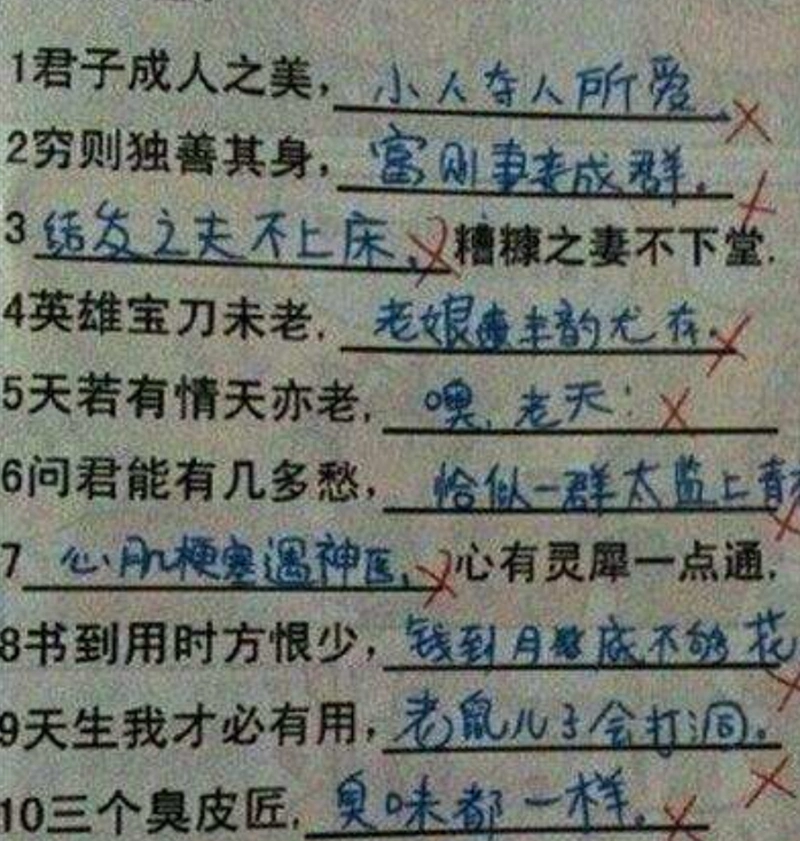 1君子成人之美，小人夺人所爱.
2穷则独善其身，富则妻妾成群.
3结发之夫不上床，糟糠之妻不下堂.
4英雄宝刀未老，老娘丰韵尤存.
5天若有情天亦老，噢，老天！
6问君能有几多愁，恰似一群太监上青
7心肌梗塞遇神医，心有灵犀一点通.
8书到用时方恨少，钱到月底不够花
9天生我才必有用，老鼠儿子会打洞。
10三个臭皮匠，臭味都一样.